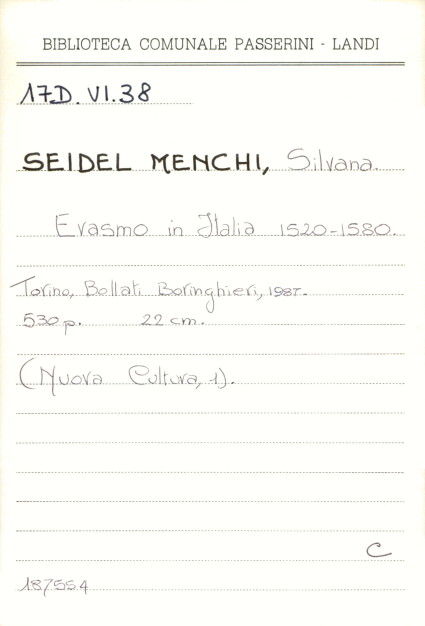 BIBLIOTECA COMUNALE PASSERINI - LANDI
17D. VI.38
SEIDEL MENCHI, Silvana.
Evasmo in Italia 1520-1580.
Torino, Bollati Boringhieri, 1987.
530 p. 22 cm.
(Nuova Cultura, 1).
C
187554